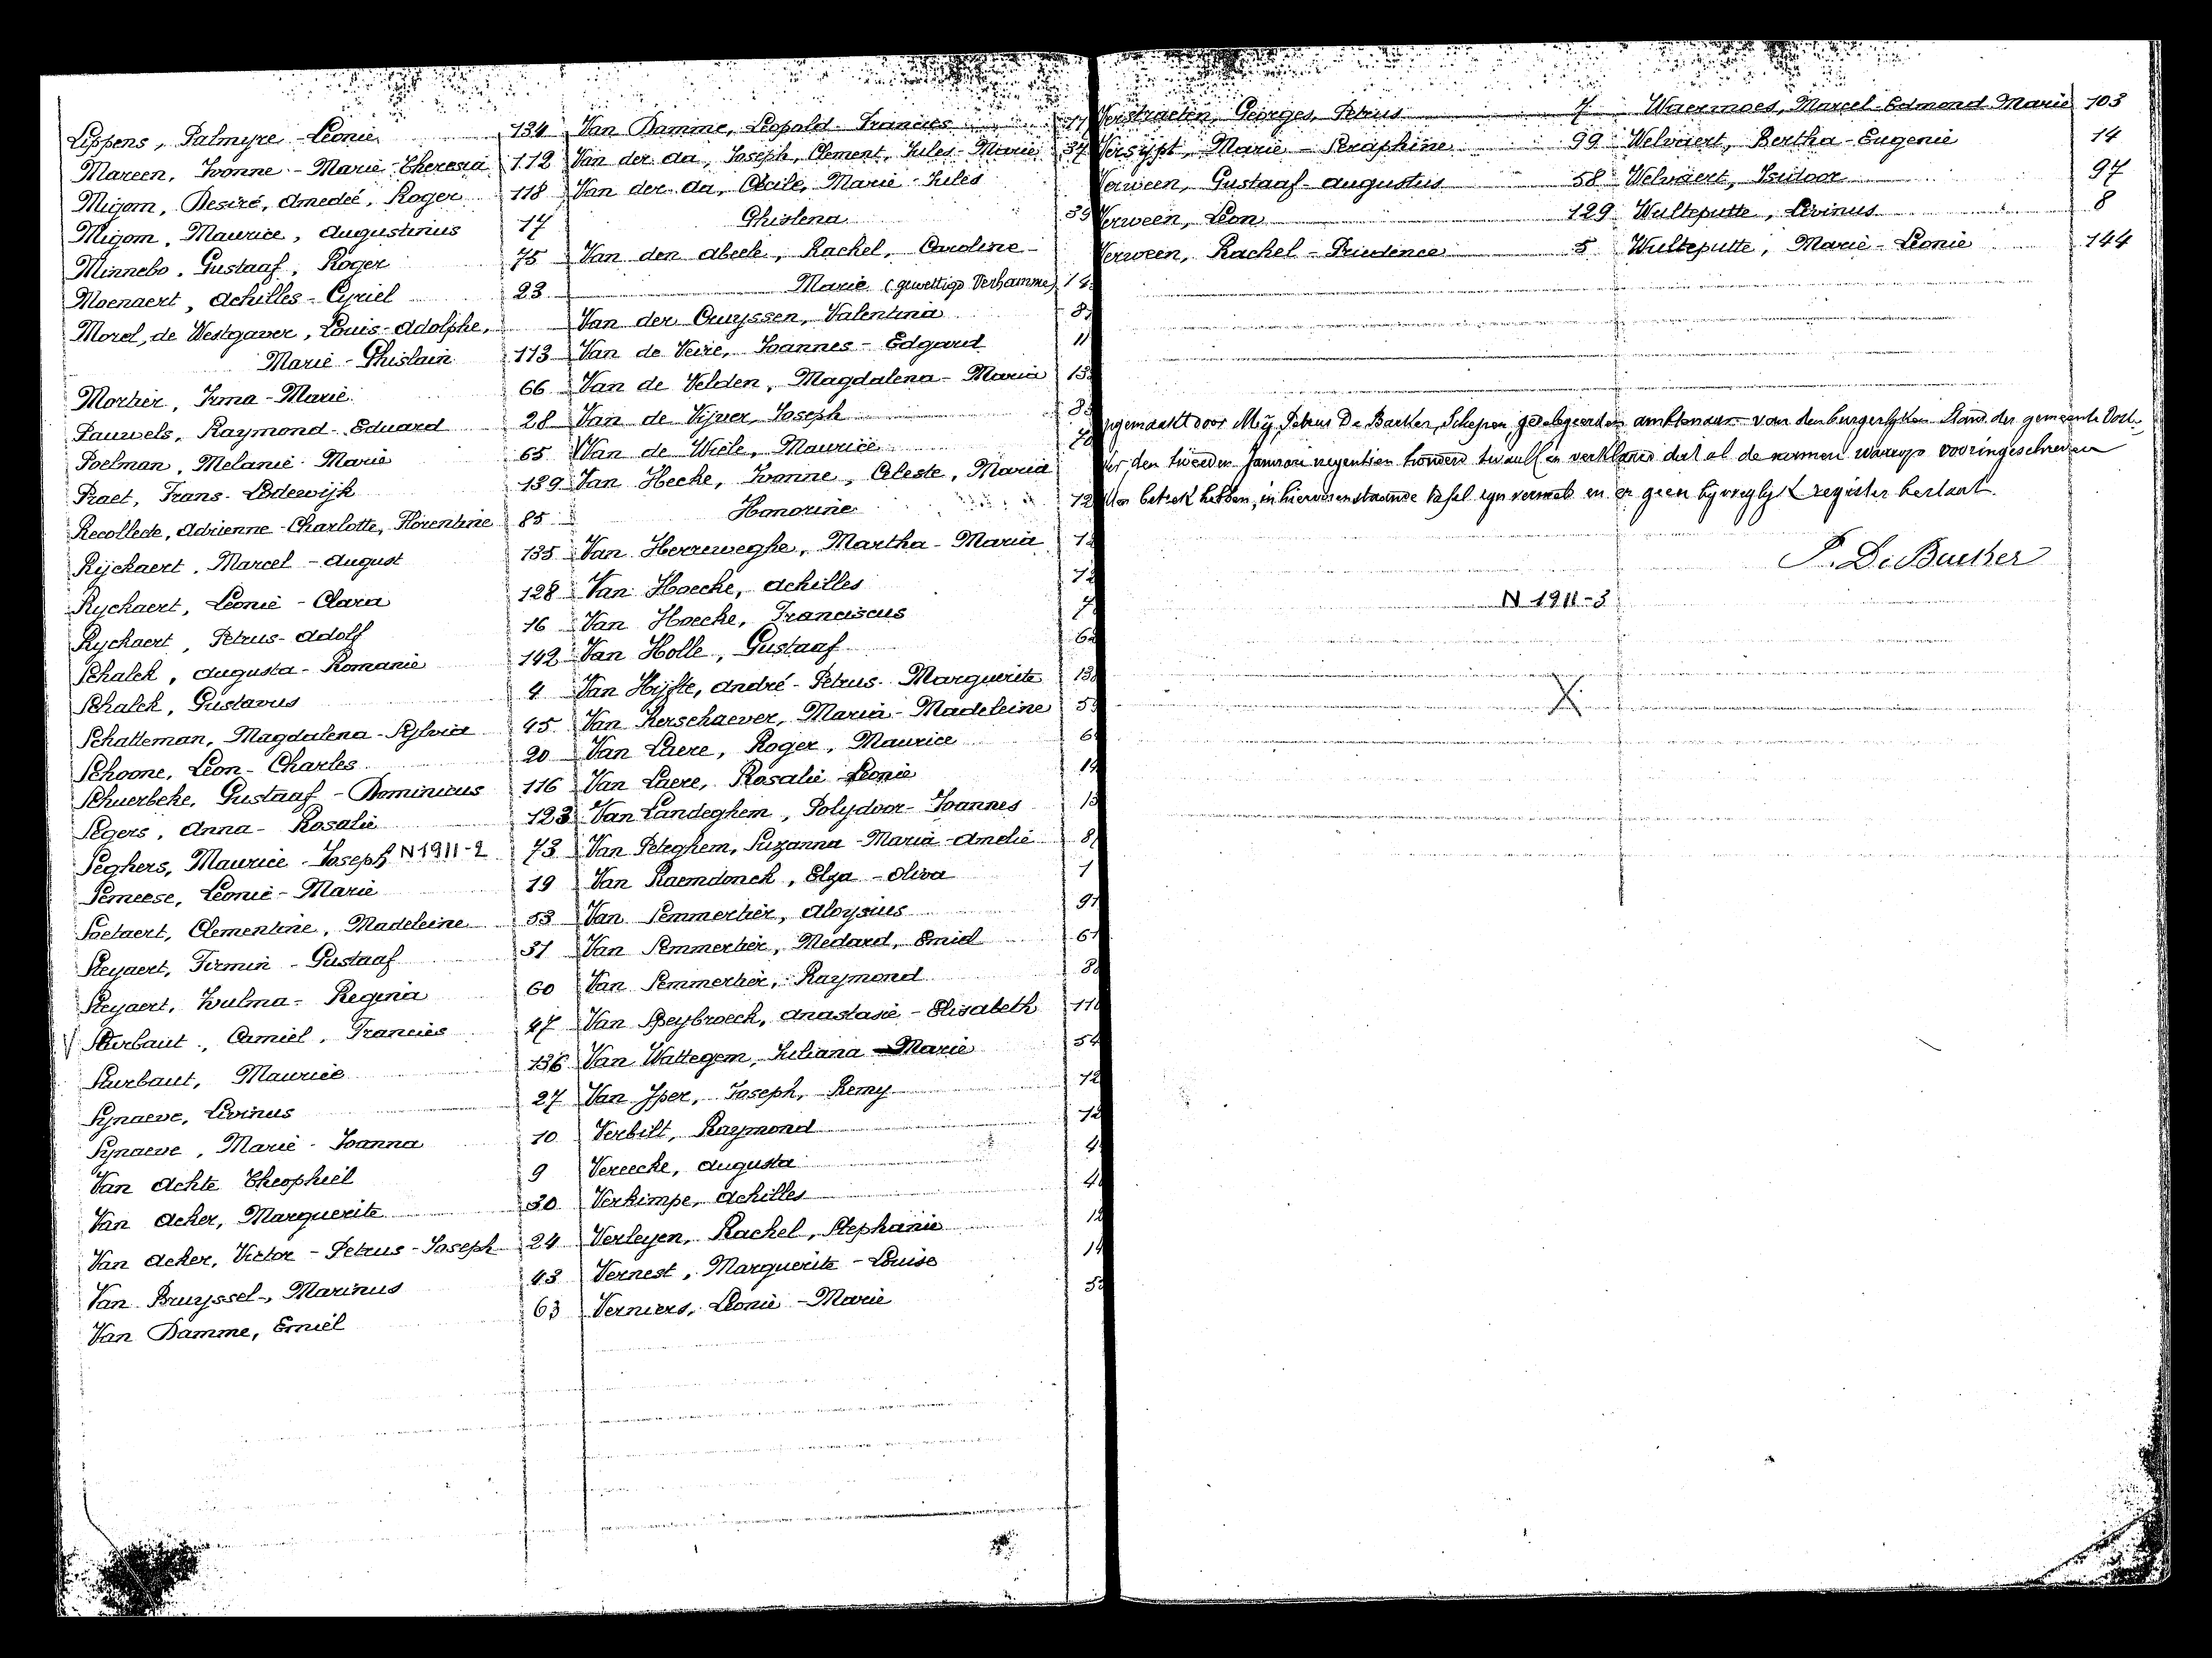 Lippens, Palmyre - Leonie 134
Mareen, Ivonne - Marie - Theresia 112
Migom, Desiré, Amedeé, Roger 118
Migom, Maurice, Augustinus 17
Minnebo, Gustaaf, Roger 75
Moenaert, Achilles - Cyriel 23
Morel, de Westgaver, Louis - Adolphe,
Marie - Ghislain 113
Mortier, Irma - Marie 66
Pauwels, Raymond - Eduard 28
Poelman, Melanie - Marie 65
Praet, Frans - Lodewijk 139
Recollede, Adrienne - Charlotte, Florentine 85
Rijckaert, Marcel - August 135
Ryckaert, Leonie - Clara 128
Ryckaert, Petrus - Adolf 16
Schalck, Augusta - Romanie 142
Schalck, Gustavus 4
Schatteman, Magdalena - Sylvia 45
Schoone, Leon - Charles 20
Schuerbeke, Gustaaf - Dominicus 116
Segers, Anna - Rosalie 123
Seghers, Maurice - Joseph N 1911-2 73
Semeese, Leonie - Marie 19
Soetaert, Clementine, Madeleine 53
Steyaert, Firmin - Gustaaf 31
Steyaert, Zulma - Regina 60
V Sturbaut, Camiel, Francies 47
Sturbaut, Maurice 136
Synaeve, Livinus 27
Synaeve, Marie - Joanna 10
Van Achte Theophiel 9
Van Acker, Marguerite 30
Van Acker, Victor - Petrus - Joseph 24
Van Bruyssel, Marinus 43
Van Damme, Emiel 63
Van Damme, Leopold - Francies 11
Van der Aa, Joseph, Clement, Jules - Marie 37
Van der Aa, Cécile, Marie - Jules
Ghislena 39
Van den Abeele, Rachel, Caroline -
Marie (gewettigd Verhamme) 14
Van der Cruyssen, Valentina 8
Van de Veire, Joannes - Edgard 11
Van de Velden, Magdalena - Maria 13
Van de Vijver, Joseph 8
Van de Wiele, Maurice 70
Van Hecke, Ivonne, Celeste, Maria
Honorine 12
Van Herreweghe, Martha - Maria 12
Van Hoecke, Achilles 12
Van Hoecke, Franciscus 7
Van Holle, Gustaaf 62
Van Hijfte, André - Petrus - Marguerite 13
Van Kerschaever, Maria - Madeleine 5
Van Laere, Roger, Maurice 6
Van Laere, Rosalie - Leonie 14
Van Landeghem, Polydoor - Joannes 13
Van Peteghem, Suzanna - Maria - Amelie 8
Van Raemdonck, Elza - Oliva 1
Van Semmertier, Aloysius 91
Van Semmertier, Medard, Emiel 61
Van Semmertier, Raymond 8
Van Speybroeck, Anastasie - Elisabeth 110
Van Wattegem, Juliana - Marie 54
Van Yper, Joseph, Remy 12
Verbilt, Raymond 12
Vereecke, Augusta 4
Verkimpe, Achilles 4
Verleyen, Rachel, Stephanie 12
Vernest, Marguerite - Louise 14
Verniers, Leonie - Marie 5
Verstraeten, Georges, Petrus 7
Versijpt, Marie - Seraphine 99
Verween, Gustaaf - Augustus 58
Verween, Leon 129
Verween, Rachel - Prudence 5
Waermoes, Marcel - Edmond - Marie 103
Welvaert, Bertha - Eugenie 14
Welvaert, Isidoor 97
Wulteputte, Livinus 8
Wulteputte, Marie - Leonie 144
gemaakt door Mij, Petrus De Backer, Schepen, gedelegeerden ambtenaar van den burgerlyken Stand der gemeente
den tweeden Januari negentien honderd twaalf en verklaard dat al de namen waarop
betrek hebben, in hiervorenstaande tafel zyn vermeld en er geen bijvoeglyk register bestaat.
P. De Backer
N 1911-3
X